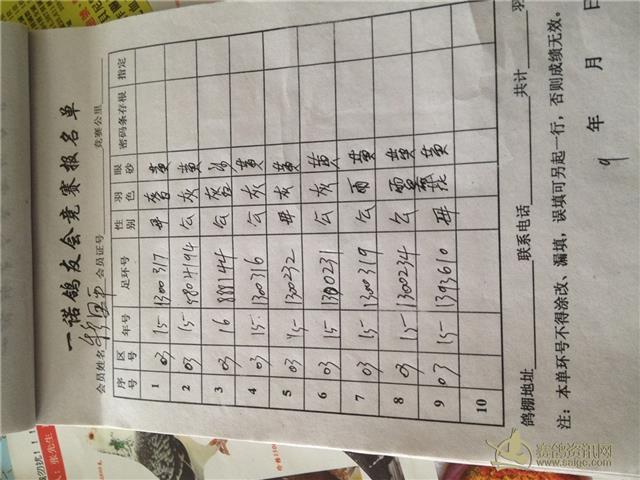 一诺鸽友会竞赛报名单
会员姓名 会员证号 竞赛公里
序号 区号 年号 足环号 性别 羽色 眼砂 密码条存根 指定
1 03 15- 1300317 母 黄
2 03 15- 8804194 公 灰 黄
3 03 16 888144 公 灰 沙
4 03 15- 1300316 公 灰 黄
5 03 15 1300232 母 灰 黄
6 03 15- 1300231 公 灰 黄
7 03 15- 1300319 公 雨 黄
8 03 15- 1300234 公 雨 黄
9 03 15- 1393610 母 花 黄
10
鸽棚地址 联系电话 共计 羽
注：本单环号不得涂改、漏填，误填可另起一行，否则成绩无效。
9 年 月 日
张先生
赛鸽资讯网
www.saige.com